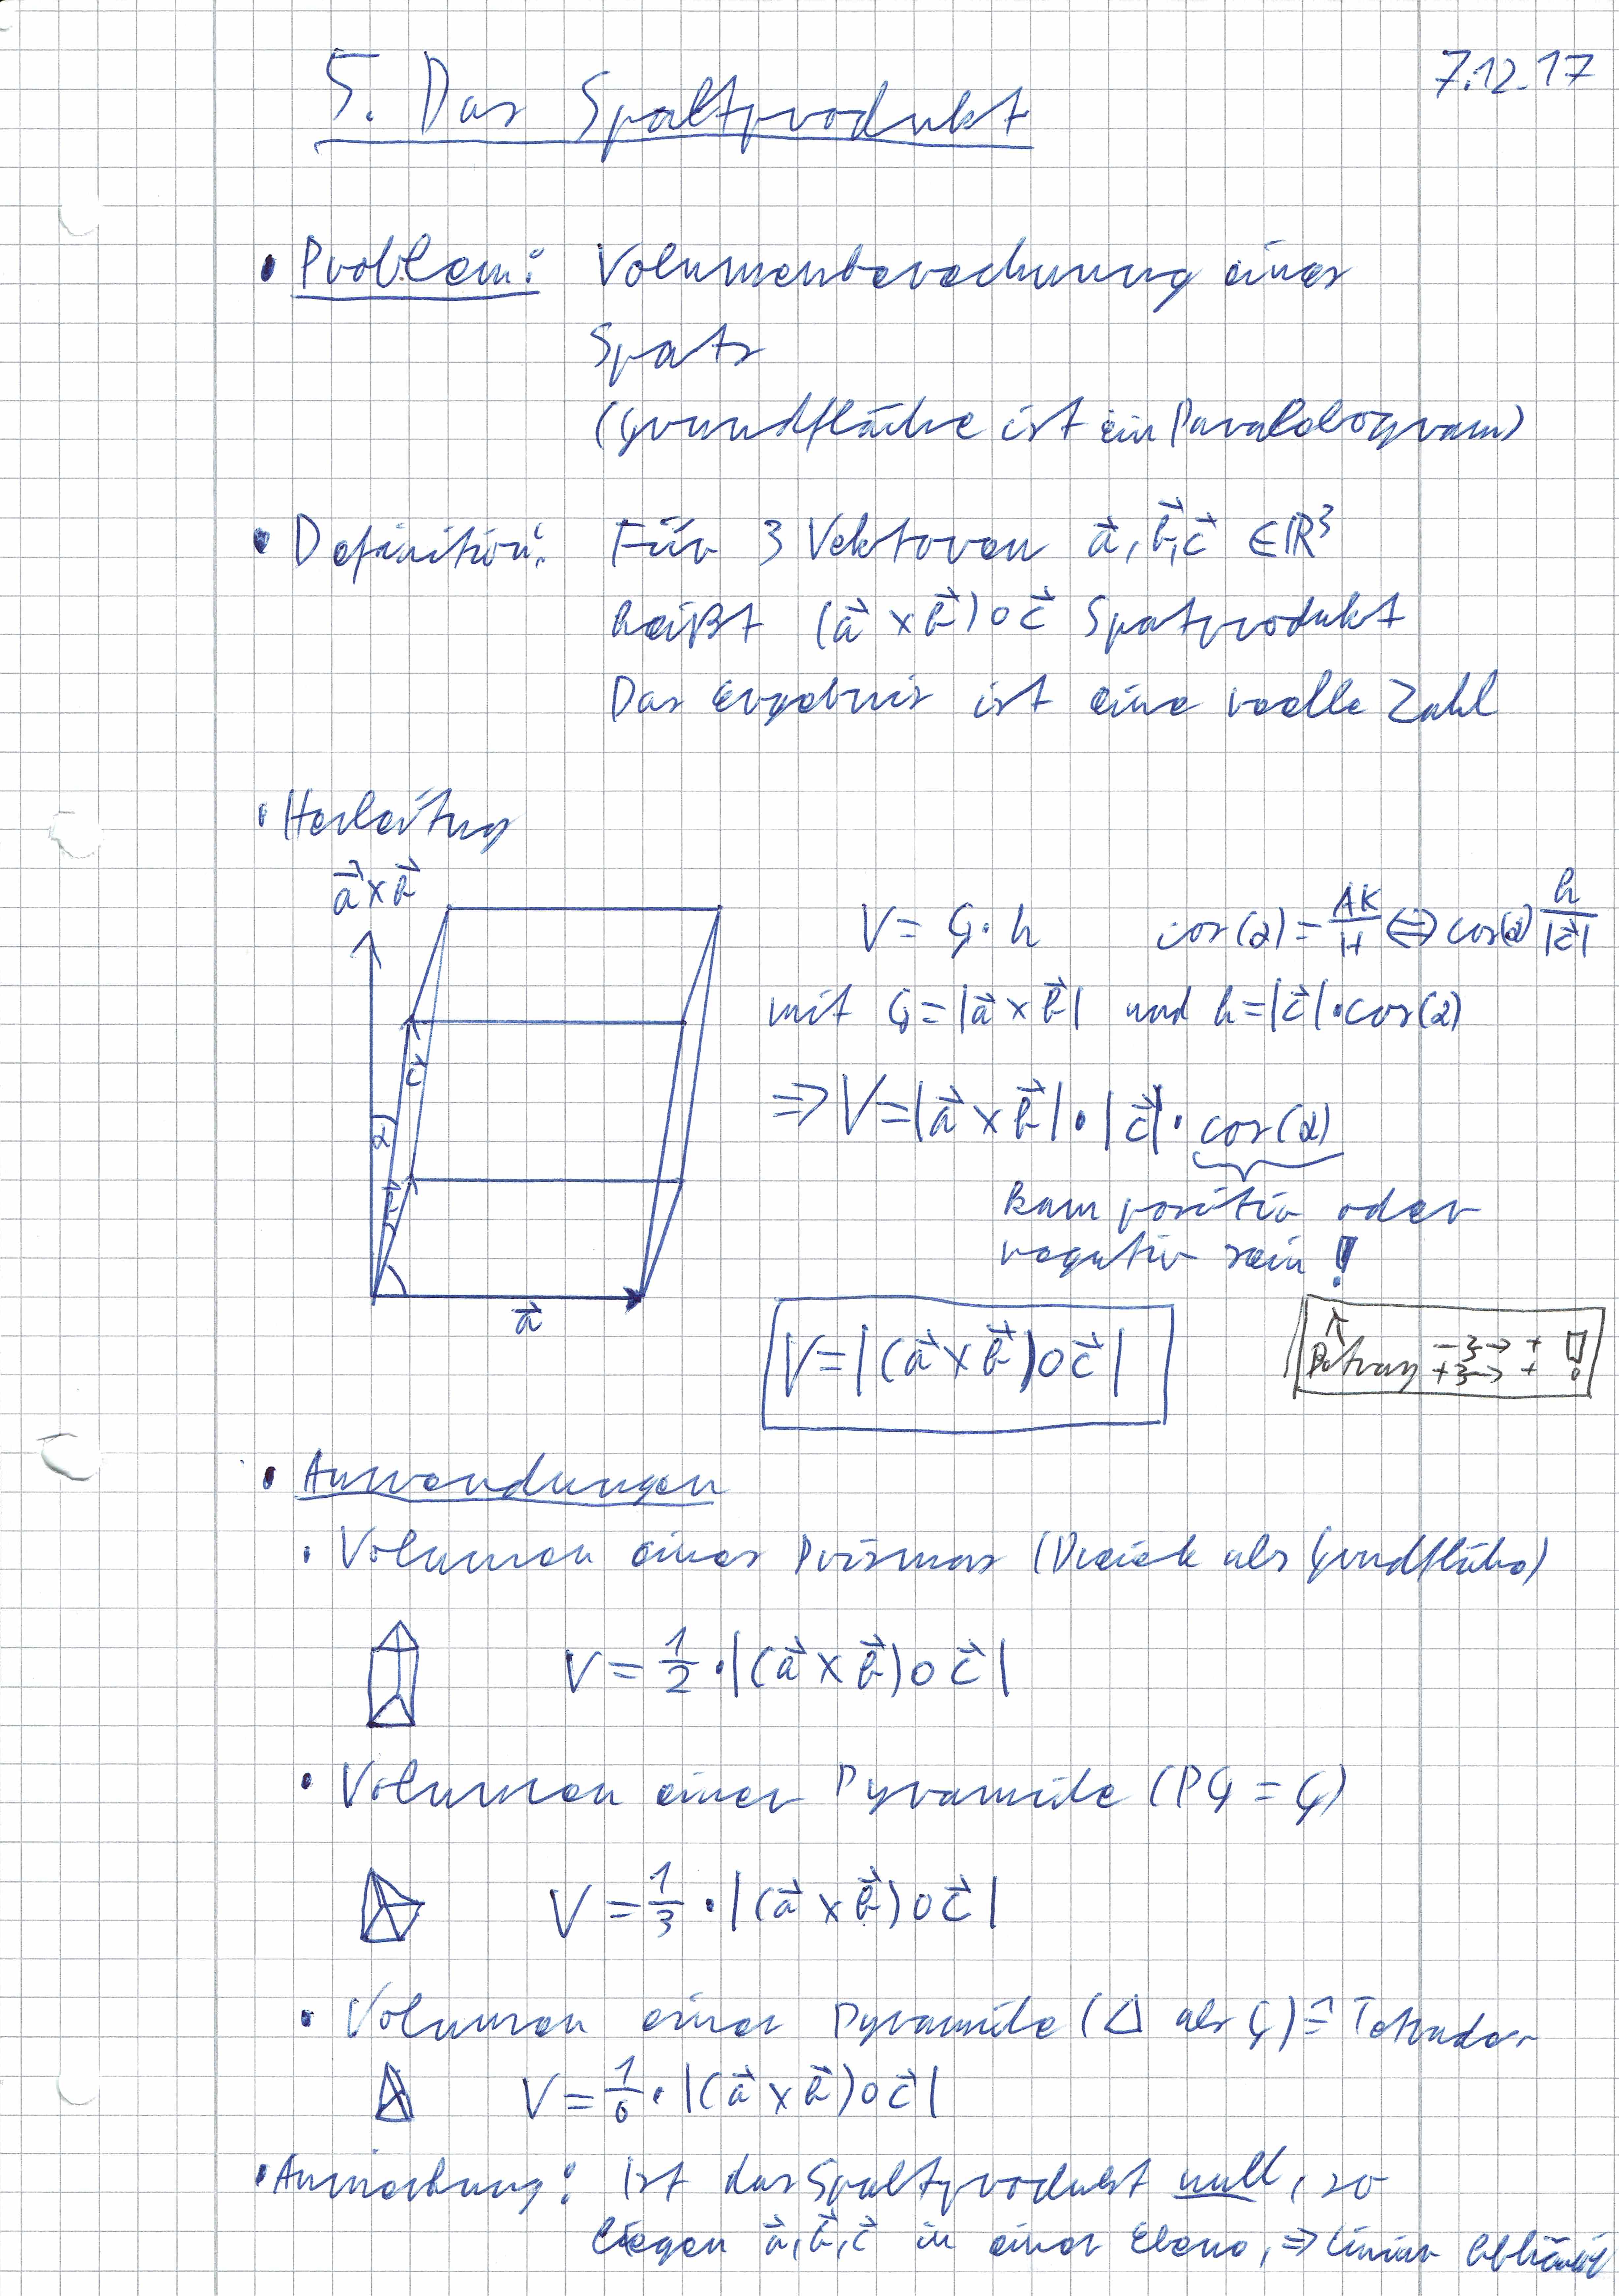 7.12.17
5. Das Spaltprodukt
• Problem: Volumenberechnung eines
Spats
(Grundfläche ist ein Paralelogramm)
• Definition: Für 3 Vektoren a⃗, b⃗, c⃗ ∈ ℝ³
heißt (a⃗ × b⃗) ∘ c⃗ Spatprodukt
Das Ergebnis ist eine reelle Zahl
• Herleitung
a⃗ × b⃗
V = G · h cos(α) = AK/H ⇔ cos(α) h/|c⃗|
mit G = |a⃗ × b⃗| und h = |c⃗| · cos(α)
c⃗
⇒ V = |a⃗ × b⃗| · |c⃗| · cos(α)
α
b⃗
kann positiv oder
negativ sein !
a⃗
V = |(a⃗ × b⃗) ∘ c⃗|
↑
Betrag -3 → +
+3 → + !
• Anwendungen
• Volumen eines Prismas (Dreieck als Grundfläche)
V = 1/2 · |(a⃗ × b⃗) ∘ c⃗|
• Volumen einer Pyramide (PG = G)
V = 1/3 · |(a⃗ × b⃗) ∘ c⃗|
• Volumen einer Pyramide (△ als G) ≙ Tetraeder
V = 1/6 · |(a⃗ × b⃗) ∘ c⃗|
• Anmerkung: Ist das Spaltprodukt null, so
liegen a⃗, b⃗, c⃗ in einer Ebene, ⇒ linear abhängig